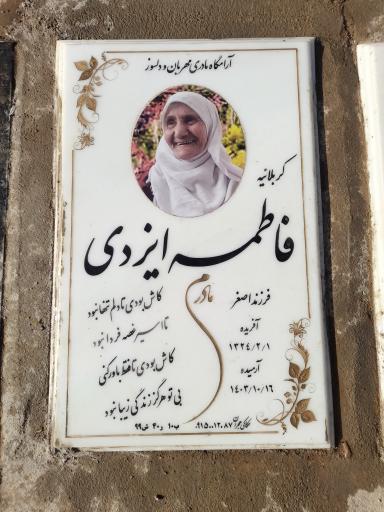 آرامگاه مادری مهربان و دلسوز
کربلائیه
فاطمه ایزدی
فرزند اصغر
آفریده
۱۳۲۴/۲/۱
آرمیده
۱۴۰۳/۱۰/۱۶
مادرم
کاش بودی تا دلم تنها نبود
تا اسیر غصه فردا نبود
کاش بودی تا فقط باور کنی
بی تو هرگز زندگی زیبا نبود
ب۱۰ د۳۰ ش۹۹